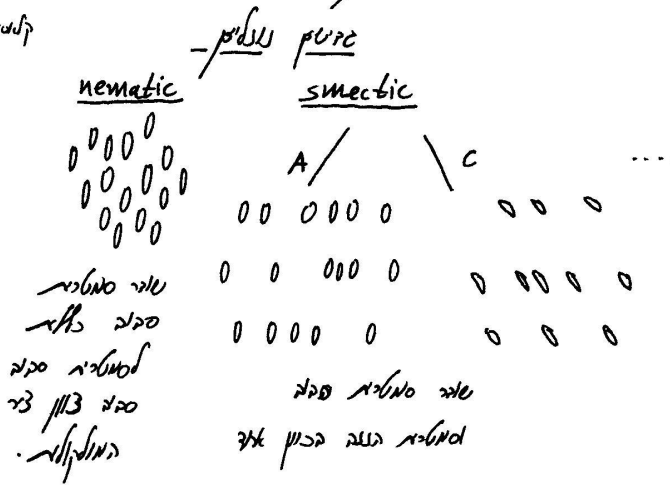 גבישים נוזליים –
nematic smectic
A C ...
שובר סמטרית
סבוב כללית
לסמטרית סבוב
סבוב לציר
המולקולות.
שובר סמטרית סבוב
וסמטרית הזזה בכוון אחד